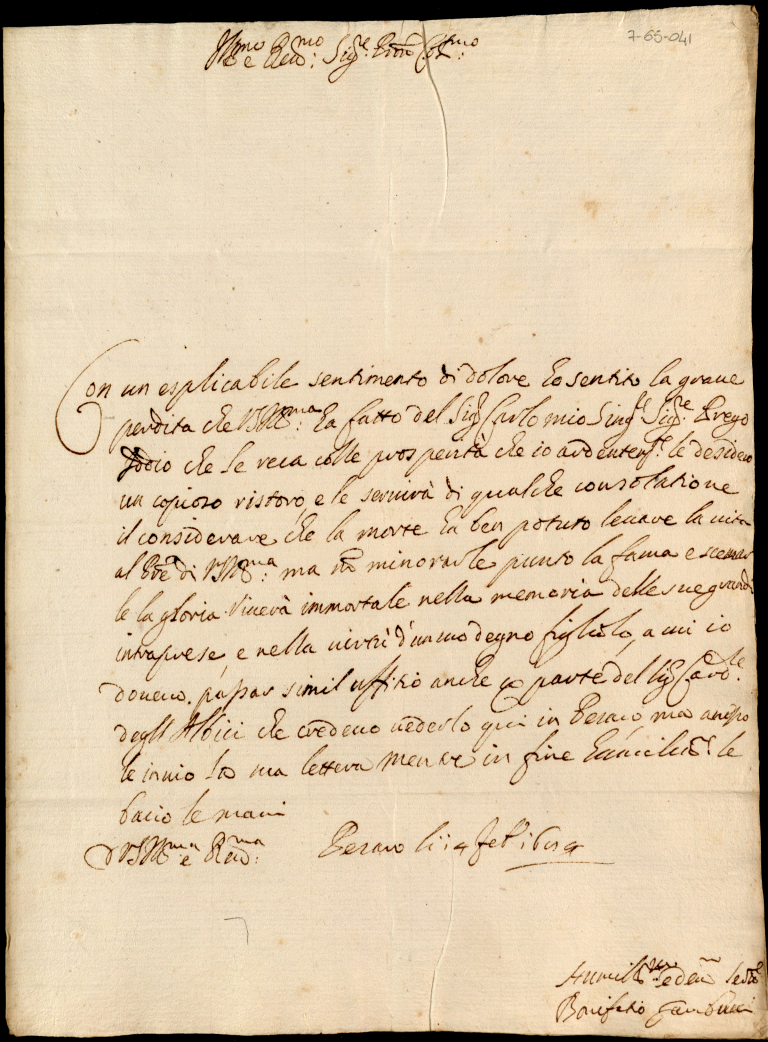 7-65-041
Ill.mo e Reu.mo Sig.re Pron Col.mo
Con un esplicabile sentimento di dolore ho sentito la graue
perdita che VS Ill.ma ha fatto del Sig.r Carlo mio Sing.r Sig.re Prego
Iddio che le reca colle prosperità che io ardentem.te le desidero
un copioso ristoro, e le seruirà di qualche consolatione
il considerare che la morte ha ben potuto leuare la uita
al di VS Ill.ma: ma nõ minorarle punto la fama e scemar
le la gloria. Viuerà immortale nella memoria delle sue grandi
intraprese, e nella uirtù d'un suo degno figliolo, a cui io
doueuo passar simil uffitio anche per parte del Sig.r Card.le
degl' Albici che credeuo uederlo qui in Pesaro, ma
le inuio la sua lettera mentre in fine le
bacio le mani
D VS Ill.ma e Reu.ma Pesaro li 14 Feb.o
Humiliss.mo e deu.mo Seru.re
Bonifatio